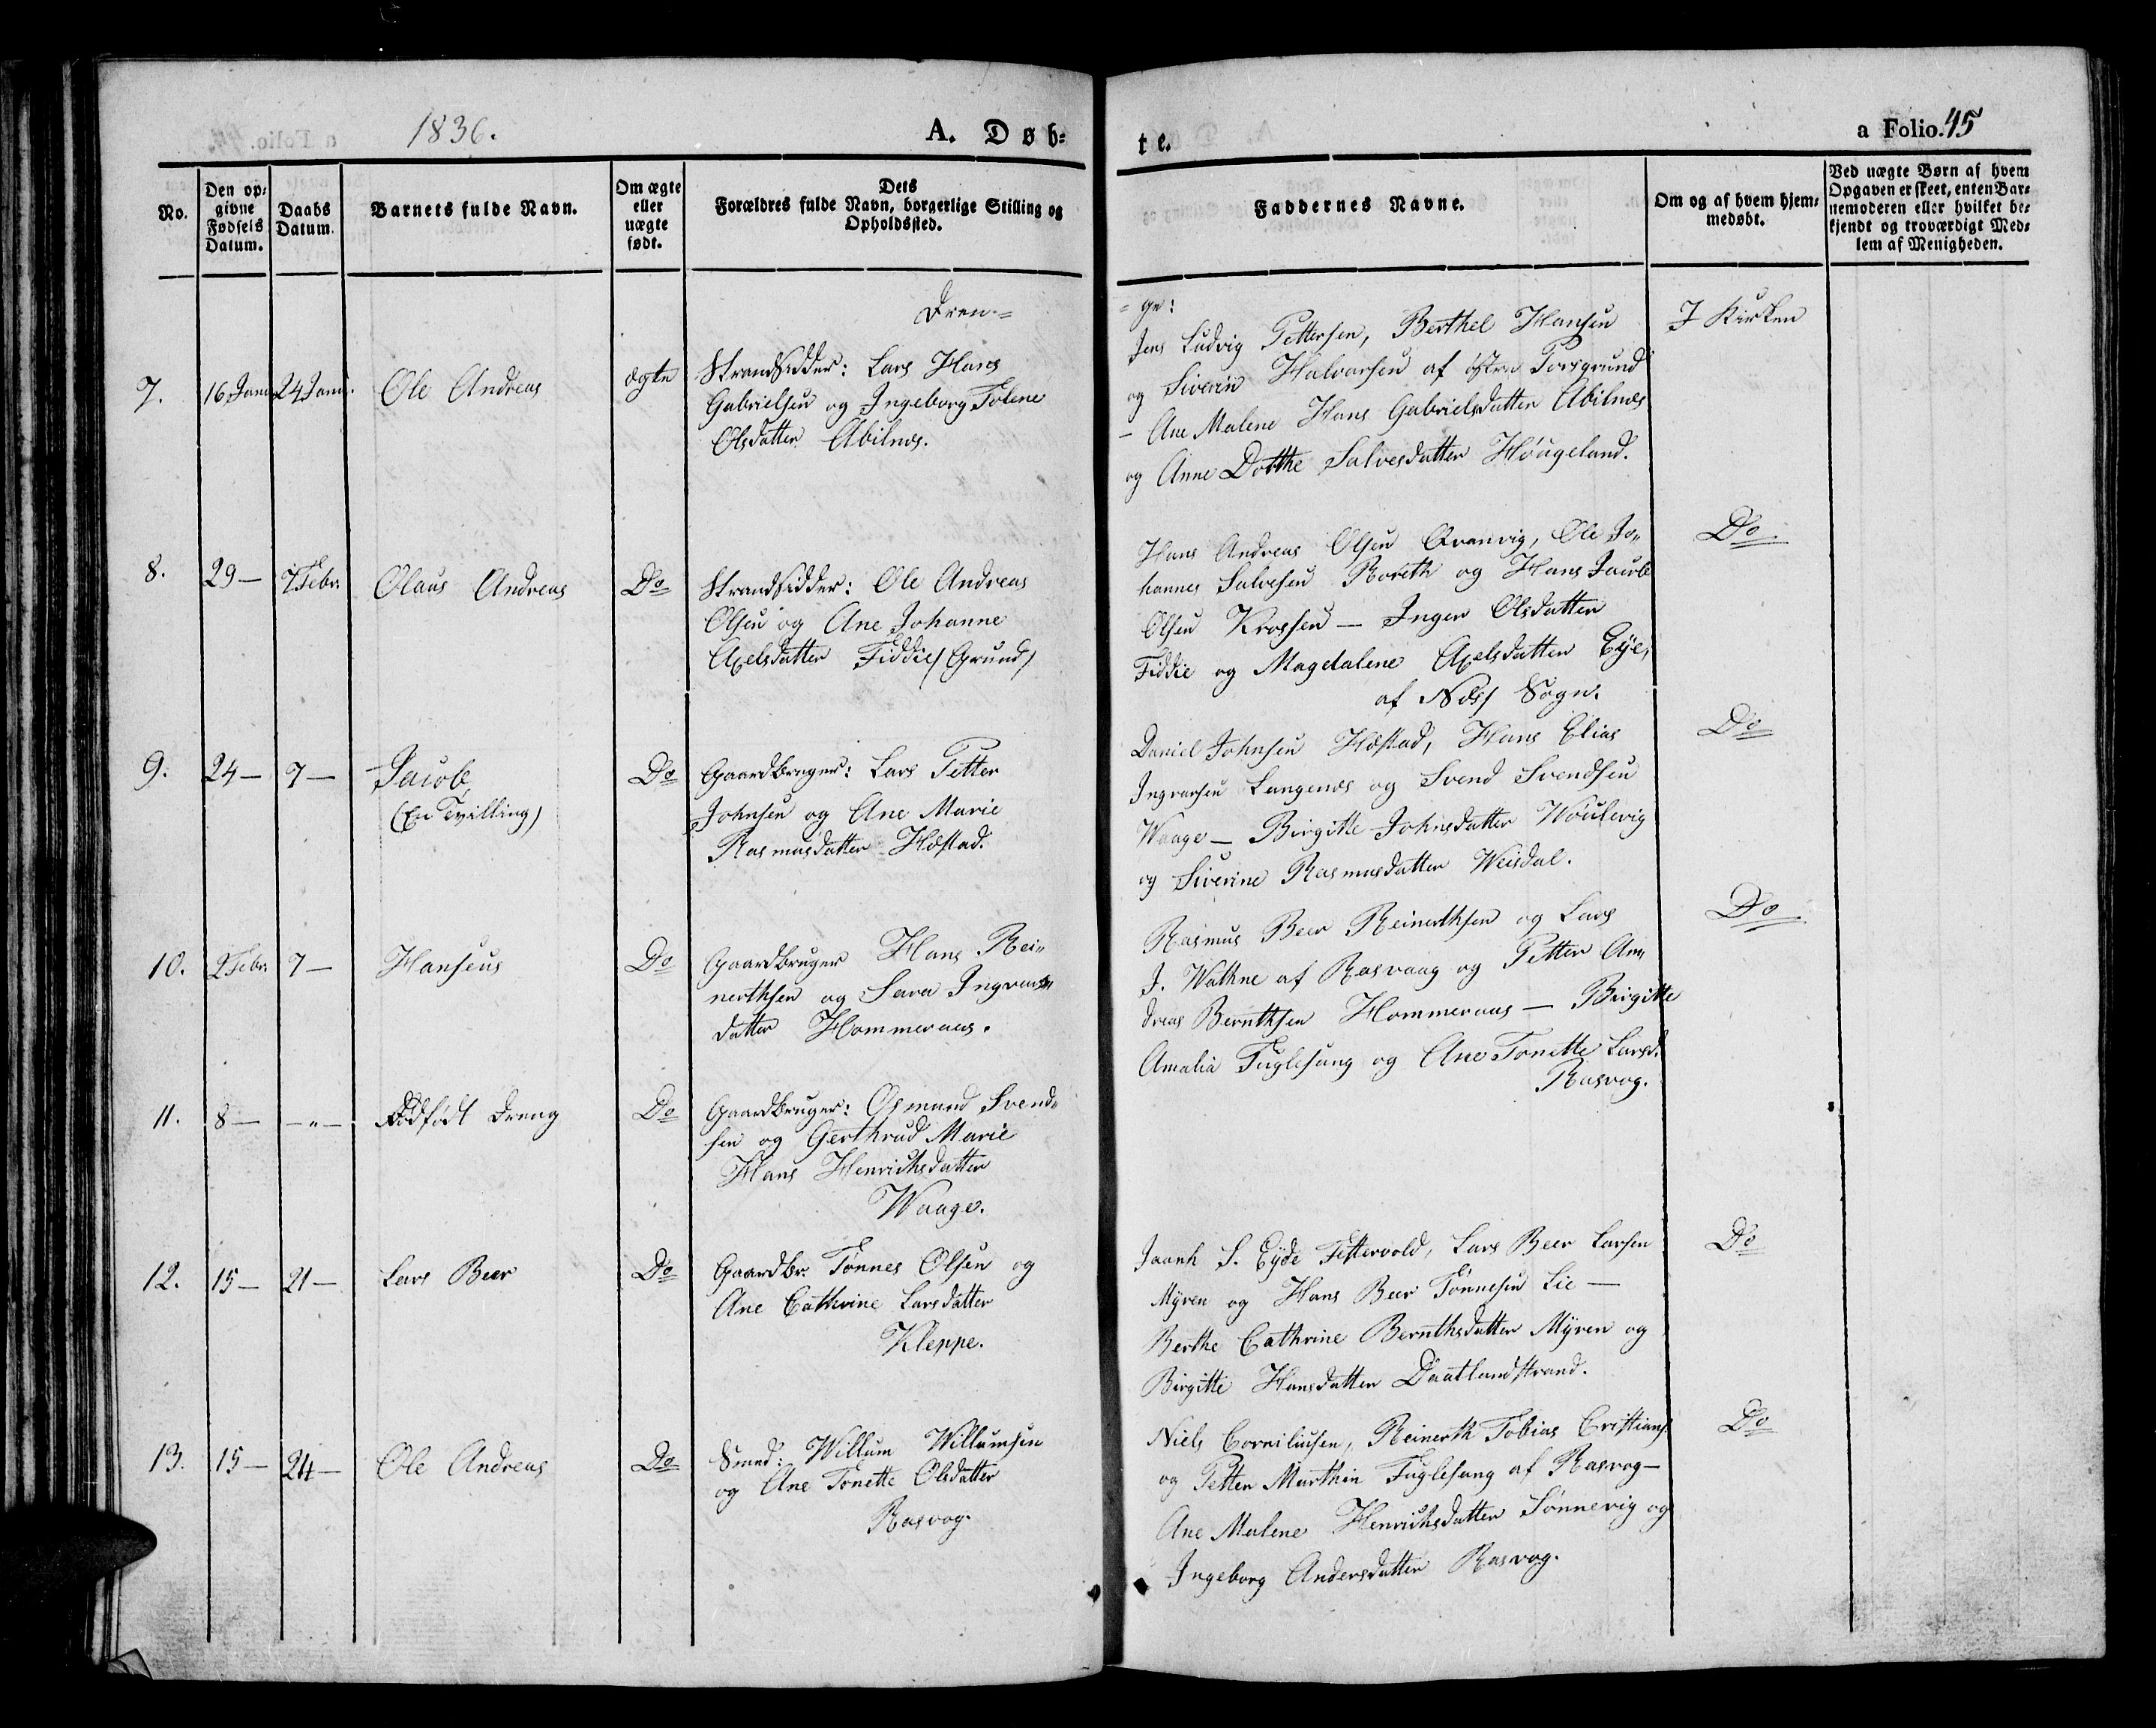 1836.
A. Døb-
te.
a Folio. 45
No.
Den op-
givne
Fødsels
Datum.
Daabs
Datum.
Barnets fulde Navn.
Om ægte
eller
uægte
født.
Dets
Forældres fulde Navn, borgerlige Stilling og
Opholdssted.
Faddernes Navne.
Om og af hvem hjem-
medøbt.
Ved uægte Børn af hvem
Opgaven er skeet, enten Bar-
nemoderen eller hvilket be-
kjendt og troværdigt Med-
lem af Menigheden.
Dren-
-ge:
7. 16 Janr. 24 Janr. Ole Andreas ægte
Strandsidder: Lars Hans
Gabrielsen og Ingeborg Tolene
Olsdatter Abilnæs.
Jens Ludvig Pettersen, Berthel Hansen
og Siverin Halvorsen af østre Porsgrund
- Ane Malene Hans Gabrielsdatter Abilnæs
og Anne Dotthe Salvesdatter Høugeland.
I Kirken
8. 29 - 7 Febr. Olaus Andreas Do
Strandsidder: Ole Andreas
Olsen og Ane Johanne
Axelsdatter Fiddie (Grund)
Hans Andreas Olsen Qvanvig, Ole Jo-
hannes Salvesen Roseth og Hans Jacob
Olsen Krossen - Inger Olsdatter
Fiddie og Magdalene Axelsdatter Eÿe,
af Næss Sogn.
Do
9. 24 - 7 - Jacob
(En Tvilling)
Do
Gaardbruger: Lars Petter
Johnsen og Ane Marie
Rasmusdatter Hæstad.
Daniel Johnsen Hæstad, Hans Elias
Ingvarsen Langenæs og Svend Svendsen
Waage - Birgitte Johnsdatter Woulevig
og Siverine Rasmusdatter Weisdal.
Do
10. 2 Febr. 7 - Hanseus Do
Gaardbruger Hans Rei-
nerthsen og Sara Ingvars-
datter Hommeraas.
Rasmus Beer Reinerthsen og Lars
J. Wathne af Rasvaag og Petter An-
dreas Bernthsen Hommeraas - Birgitte
Amalia Fuglesang og Ane Tonette Larsd.
Rasvog.
Do
11. 8 - - " - Dødfødt Dreng Do
Gaardbruger: Osmund Svend-
sen og Gerthrud Marie
Hans Henrichsdatter
Waage.
12. 15 - 21 - Lars Beer Do
Gaardbr. Tønnes Olsen og
Ane Cathrine Larsdatter
Kleppe.
S. Eÿde Fettervold, Lars Beer Larsen
Mÿren og Hans Beer Tønnesen Lie -
Berthe Cathrine Bernthsdatter Mÿren og
Birgitte Hansdatter Daatlandstrand.
Do
13. 15 - 24 - Ole Andreas Do
Smed: Willum Willumsen
og Ane Tonette Olsdatter
Rasvog.
Niels Corniliusen, Reinerth Tobias Cristians.
og Petter Marthin Fuglesang af Rasvog -
Ane Malene Henrichsdatter Sønnevig og
Ingeborg Andersdatter Rasvog.
Do